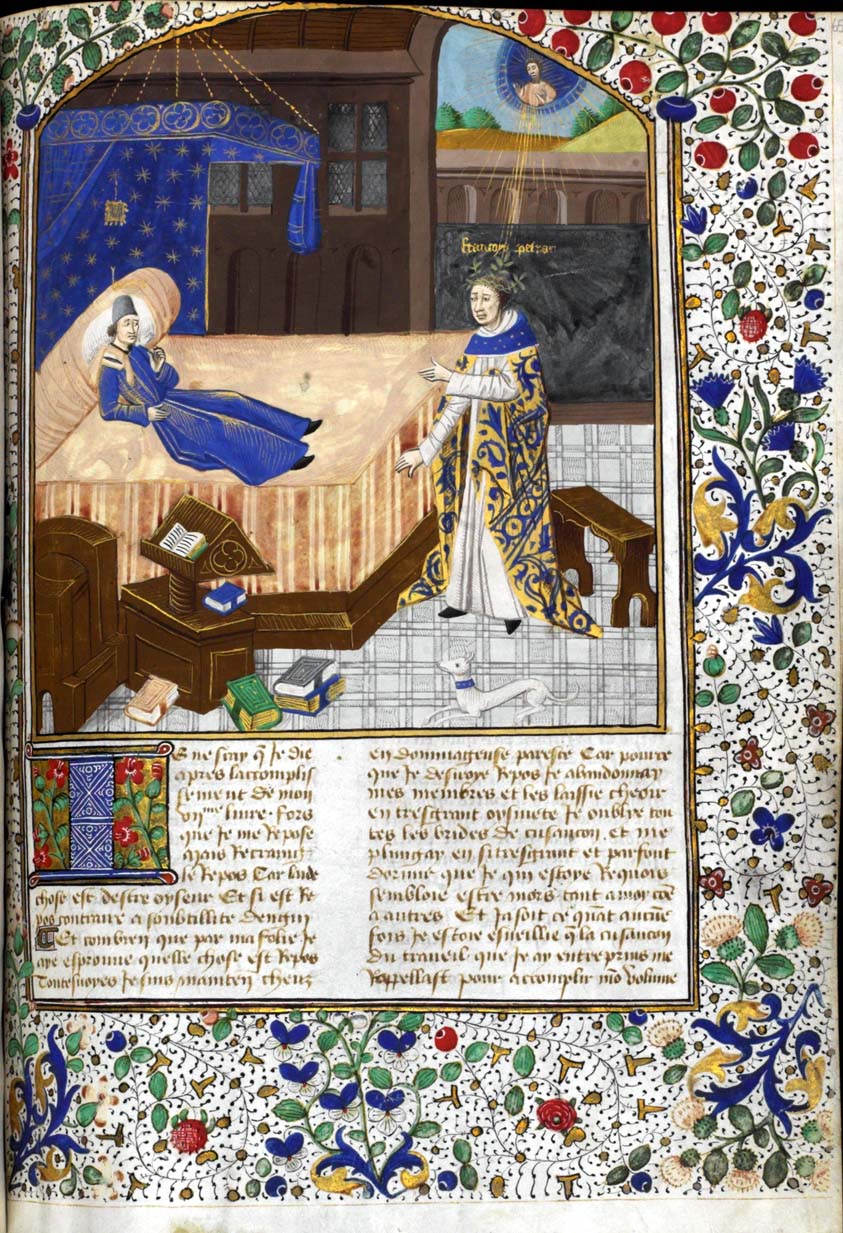 francois petrac
E ne scay q̄ Je die
apres lacomplis
sement de mon
vijme liure. fors
que Je me Repose
Mais Retraing
le Repos Car laide
chose est destre oyseux Et si est Re
pos contraire a soubtillite dengin
Et combien que par ma folie Je
aye esprouue quelle chose est Repos
Toutesuoyes Je suis mainten̄ cheuz
en dommageuse paresce Car pource
que Je desiroye Repos Je abandonnay
mes membres et les laissie cheoir
en tresgrant oysiuete Je oublye tou
tes les brides de cusancon. et me
plungay en si tresgrant et parfont
dormir que Je qui estoye Requois
sembloie estre mors tant a moy cōe
a autres Et Jasoit ce quāt aucune
fois Je estoie esueillie q̄ la cusancon
du trauail que Je ay entrepris me
Rappellast pour accomplir mō volume